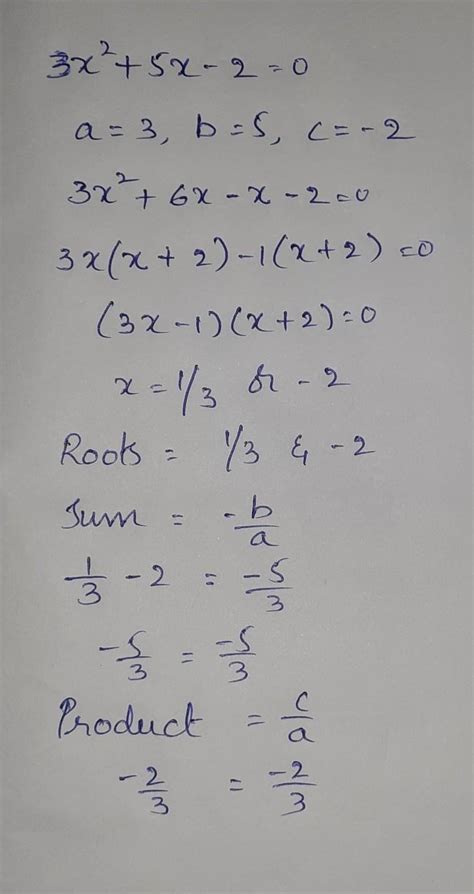 3x²+5x-2=0
a=3, b=5, c=-2
3x²+6x-x-2=0
3x(x+2)-1(x+2)=0
(3x-1)(x+2)=0
x=1/3 or -2
Roots = 1/3 & -2
Sum = -b/a
1/3 - 2 = -5/3
-5/3 = -5/3
Product = c/a
-2/3 = -2/3